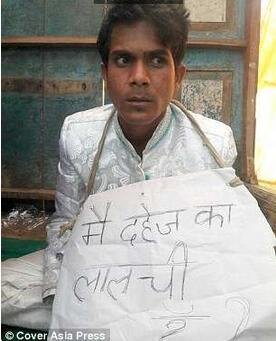 मै दहेज का
लालची
हूँ
© Cover Asia Press